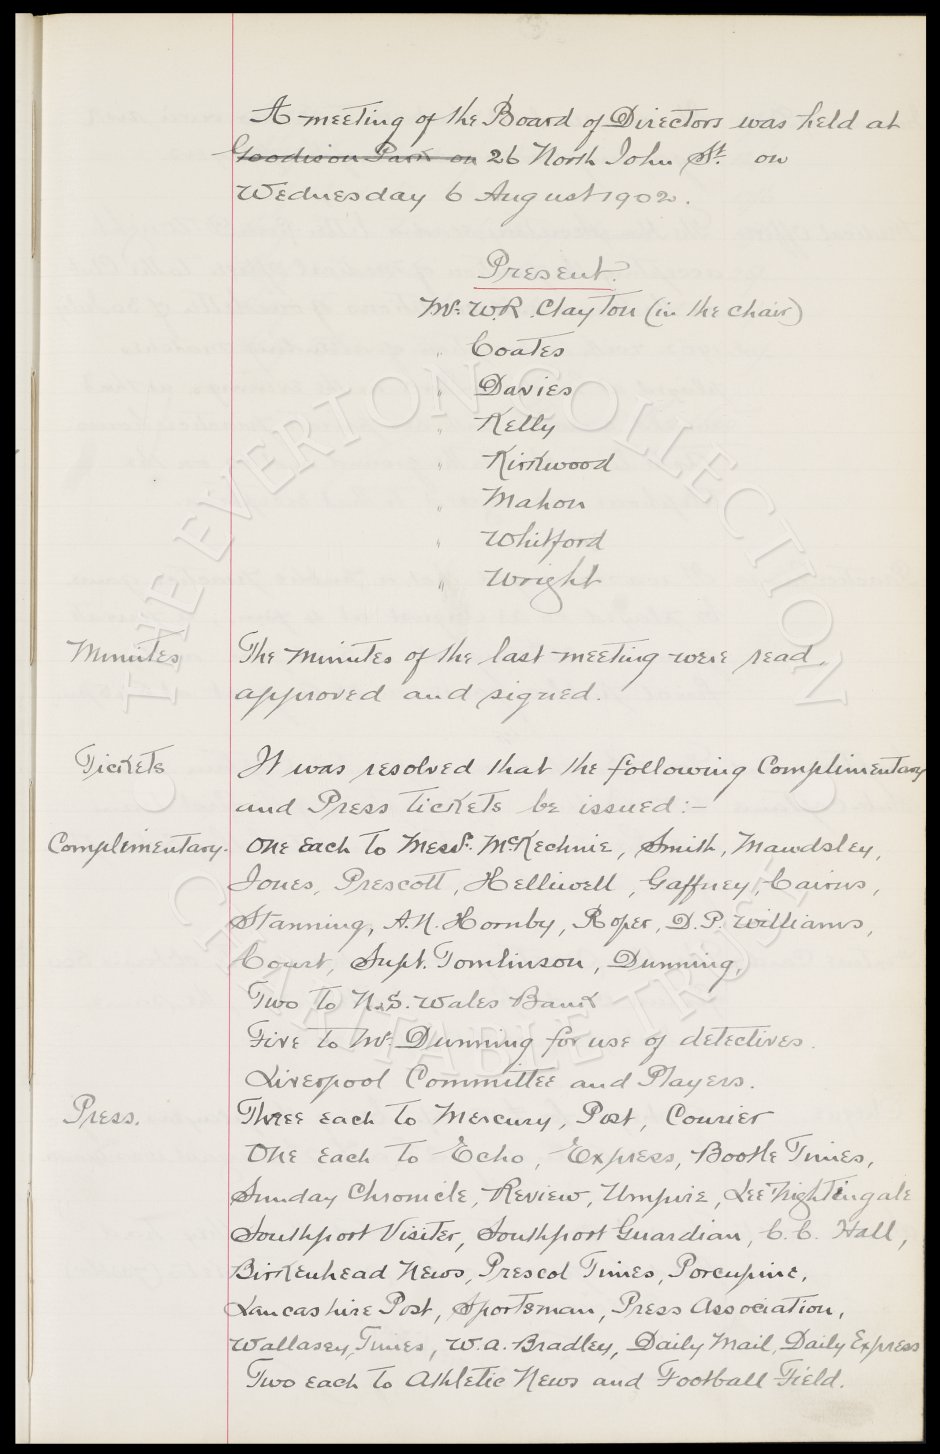 A meeting of the Board of Directors was held at
Goodison Park on 26 North John St. on
Wednesday 6 August 1902.
Present.
Mr. W.R. Clayton (in the chair)
" Coates
" Davies
" Kelly
" Kirkwood
" Mahon
" Whitford
" Wright
Minutes The Minutes of the last meeting were read,
approved and signed.
Tickets It was resolved that the following Complimentary
and Press tickets be issued:-
Complimentary. One each to Messrs. McKechnie, Smith, Mawdsley,
Jones, Prescott, Helliwell, Gaffney, Cairns,
Stanning, A.N. Hornby, Roper, D.P. Williams,
Court, Supt. Tomlinson, Dunning,
Two to N.S. Wales Bank
Five to Mr. Dunning for use of detectives.
Liverpool Committee and Players.
Press. Three each to Mercury, Post, Courier
One each to Echo, Express, Bootle Times,
Sunday Chronicle, Review, Umpire, Lee Nightingale
Southport Visiter, Southport Guardian, C.C. Hall,
Birkenhead News, Prescot Times, Porcupine,
Lancashire Post, Sportsman, Press Association,
Wallasey Times, W.A. Bradley, Daily Mail, Daily Express
Two each to Athletic News and Football Field.
THE EVERTON COLLECTION
CHARITABLE TRUST